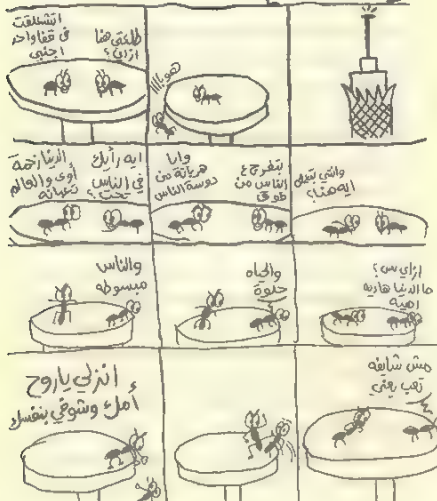 هوبااا
طلعتي هنا
ازاي؟
اتشعلقت
في قفا واحد
اجنبي
وانتي بتعملي
ايه هنا؟
بتفرج ع
الناس من
فوق
وابا
هربانة من
دوسة الناس
ايه رأيك
في الناس
تحت؟
الدنيا زحمة
أوي والعالم
تعبانه
ازاي بس؟
ما الدنيا هاديه
اهيه
والحياه
حلوة
والناس
مبسوطه
مش شايفه
تعب يعني
انزلي ياروح
أمك وشوفي بنفسك